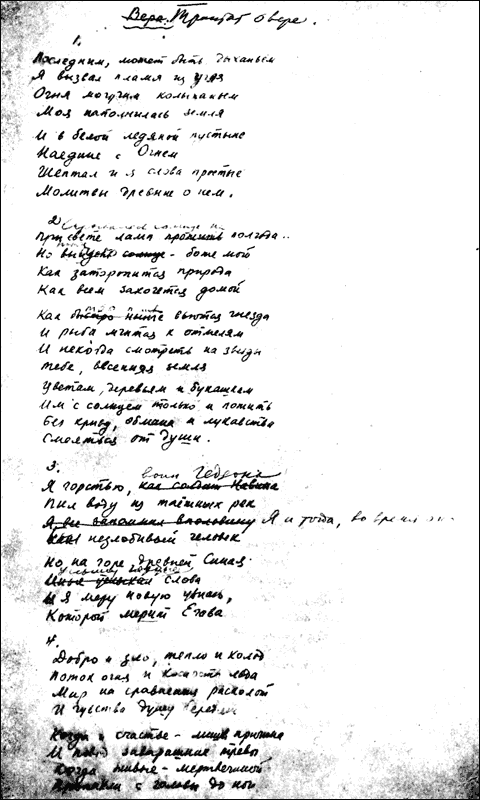 Вера. Трактат о вере.
1.
Последним, может быть дыханьем
Я вызвал пламя из угля
Огня могучим колыханьем
Моя наполнилась земля
И в белой ледяной пустыне
Наедине с Огнем
Шептал и я слова простые
Молитвы древние о нем.
2
При свете ламп прожить полгода..
Но выйдет солнце - боже мой
Как заторопится природа
Как всем захочется домой
Как быстро вьются гнезда
И рыба мчится к отмелям
И некогда смотреть на звезды
тебе, весенняя земля
Цветам, деревьям и букашкам
Им с солнцем только и
Без кривд, обмана и лукавства
Смеяться от души.
3.
воин Гедеона
Я горстью, как солдат Навина
Пил воду из таёжных рек
Я все запомнил вполовину Я и тогда, во время
незлобивый человек
Но на горе древней Синая
слова
И я меру новую узнаю,
Которой мерит Егова
4.
Добро и зло, тепло и холод
Поток огня и льда
Мир на сравнения расколот
И чувство душу
Когда счастье - лишь причина
И завтрашние
Когда живые - мертвечиной
с головы до ног